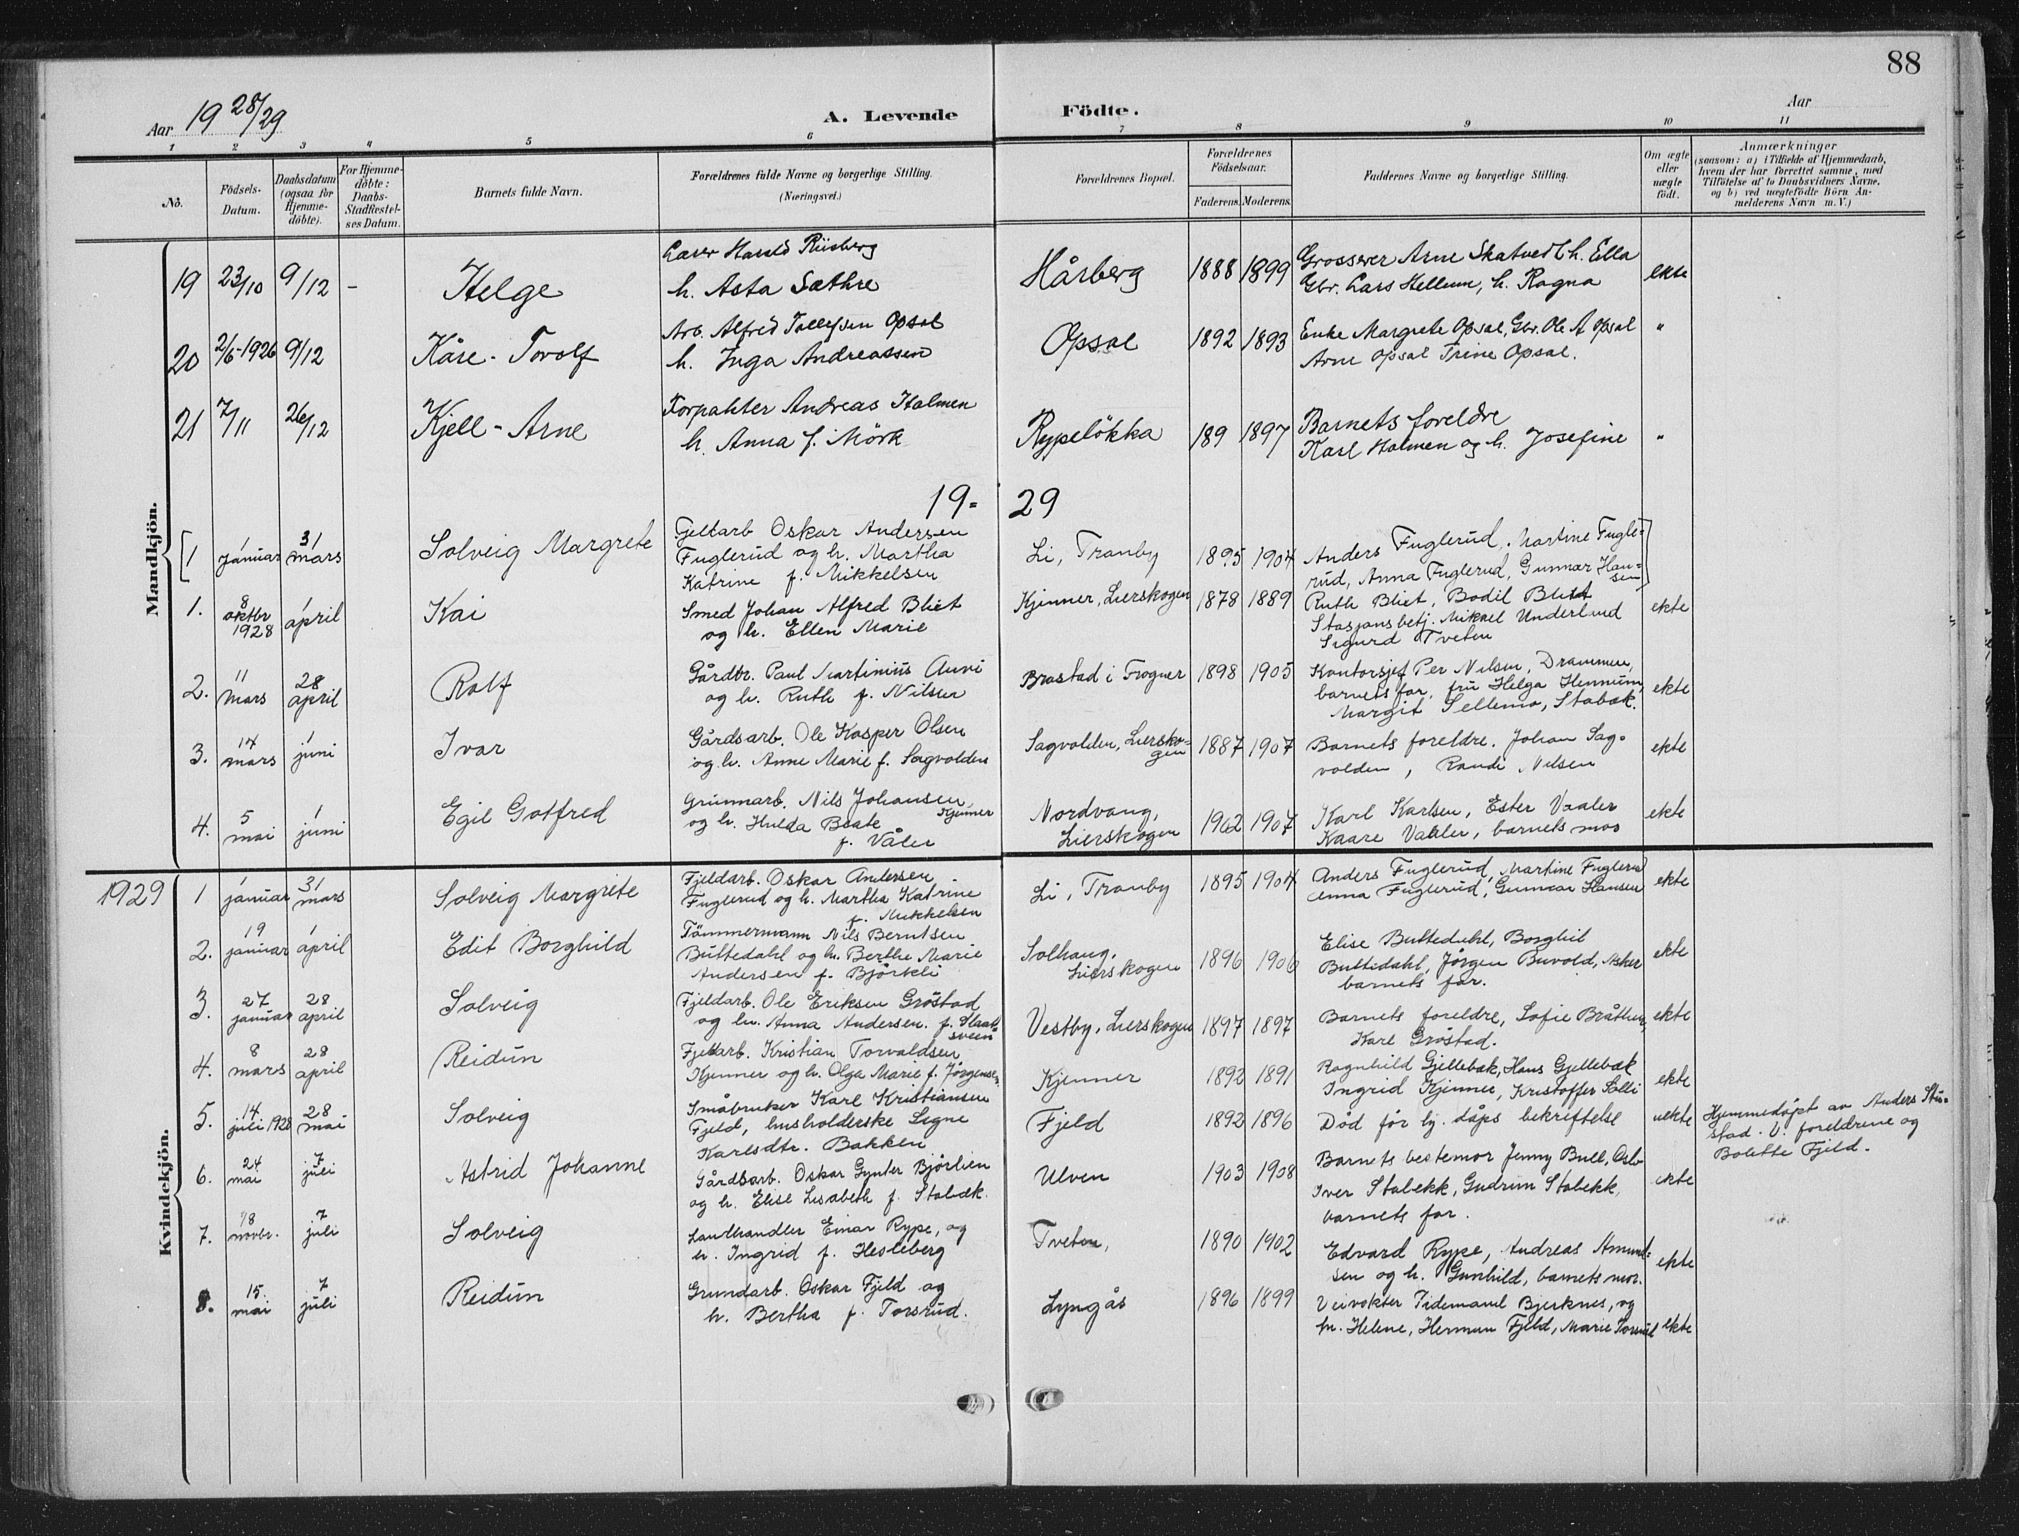 88
Aar 19 28/29
A. Levende Födte.
Aar
1 2 3 4 5 6 7 8 9 10 11
No.
Födsels-Datum.
Daabsdatum (ogsaa for Hjemme-döbte).
For Hjemme-döbte: Daabs-Stadfæstel-ses Datum.
Barnets fulde Navn.
Forældrenes fulde Navne og borgerlige Stilling. (Næringsvei.)
Forældrenes Bopæl.
Forældrenes Födselsaar.
Faderens. Moderens.
Faddernes Navne og borgerlige Stilling.
Om ægte eller uægte födt.
Anmærkninger
(saasom: a) i Tilfælde af Hjemmedaab,
hvem der har forrettet samme, med
Tilföielse af to Daabsvidners Navne,
og b) ved uægtefödte Börn An-
melderens Navn m. V.)
Mandkjön.
19 23/10 9/12 - Helge
Lærer Harald Riisberg
h. Asta Sæthre
Hårberg 1888 1899
Grosserer Arne Skatvedt h. Ella
Gbr. Lars Hellum, h. Ragna
ekte
20 2/6-1926 9/12 Kåre-Torolf
Arb. Alfred Tollefsen Opsal
h. Inga Andreassen
Opsal 1892 1893
Enke Margrete Opsal, Gbr. Ole A Opsal
Arne Opsal Trine Opsal.
"
21 7/11 26/12 Kjell-Arne
Forpakter Andreas Holmen
h. Anna f. Mörk
Rypelökka 189 1897
Barnets foreldre
Karl Holmen og h. Josefine
"
19- 29
1 1 januar 31 mars Solveig Margrete
Fjellarb Oskar Andersen
Fuglerud og h. Martha
Katrine f. Mikkelsen
Li, Tranby 1895 1904
Anders Fuglerud, Martine Fugle-
rud, Anna Fuglerud, Gunnar Han-
sen
1. 8 oktbr 1928 1 april Kai
Smed Johan Alfred Bliet
og h. Ellen Marie
Kjenner, Lierskogen 1878 1889
Ruth Bliet, Bodil Bliet
Stasjonsbetj. Mikael Underlund
Sigurd Tveten
ekte
2. 11 mars 28 april Rolf
Gårdbr. Paul Martinius
og h. Ruth f. Nilsen
Brastad i Frogner 1898 1905
Kontorsjef Per Nilsen, Drammen,
barnets far, fru Helga Hennum,
Margit Sellemo, Stabæk.
ekte
3. 14 mars 1 juni Ivar
Gårdsarb. Ole Kasper Olsen
og h. Anne Marie f. Sagvolden
Sagvolden, Liersko-
gen
1887 1907
Barnets foreldre. Johan Sag-
volden, Randi Nilsen
ekte
4. 5 mai 1 juni Egil Gotfred
Grunnarb. Nils Johansen
Kjenner
og h. Hulda Beate
f. Våler
Nordvang,
Lierskogen
1902 1907
Karl Karlsen, Ester Vaaler
Kaare Vaaler, barnets mor
ekte
Kvindekjön.
1929 1 1 januar 31 mars Solveig Margrete
Fjeldarb. Oskar Andersen
Fuglerud og h. Martha Katrine
f. Mikkelsen
Li, Tranby 1895 1904
Anders Fuglerud, Martine Fuglerud
Anna Fuglerud, Gunnar Hansen
ekte
2. 19 januar 1 april Edit Borghild
Tömmermann Nils Berntsen
Buttedahl og h. Berthe Marie
Andersen f. Björkli
Solhaug,
Lierskogen
1896 1906
Elise Buttedahl, Borghil
Buttedahl, Jørgen Buvold, Asker
barnets far.
ekte
3. 27 januar 28 april Solveig
Fjeldarb. Ole Eriksen Gröstad
og h. Anna Andersen f.
Vestby, Lierskogen 1897 1897
Barnets foreldre, Sofie Bråthen,
Karl Gröstad.
ekte
4. 8 mars 28 april Reidun
Fjellarb. Kristian Torvaldsen
Kjenner og h. Olga Marie f. Jørgensen
Kjenner 1892 1891
Ragnhild Gjellebæk, Hans Gjellebæk
Ingrid Kjenner, Kristoffer Solli
ekte
5. 14. juli 1928 28 mai Solveig
Småbruker Karl Kristiansen
Fjeld, husholderske Signe
Karlsdtr. Bakken
Fjeld 1892 1896
Död før hj. dåps bekriftelse
uekte
Hjemmedöpt av Anders Stu-
stad. V. foreldrene og
Bolette Fjeld.
6. 24 mai 7 juli Astrid Johanne
Gårdsarb. Oskar Gynter Bjørlien
og h. Elise Lisabeth f. Stabæk.
Ulven 1903 1908
Barnets bestemor Jenny Bull, Oslo
Iver Stabekk, Gudrun Stabekk,
barnets far.
ekte
7. 18 novbr. 7 juli Solveig
Landhandler Einar Rype, og
h. Ingrid f. Hesleberg
Tveten, 1890 1902
Edvard Rype, Andreas Amund-
sen og h. Gunhild, barnets mor.
ekte
8. 15. mai 7 juli Reidun
Grundarb. Oskar Fjeld og
h. Bertha f. Torsrud.
Lyngås 1896 1899
Veivokter Tidemand Bjerknes, og
fr. Helene, Herman Fjeld, Marie Torsrud
ekte